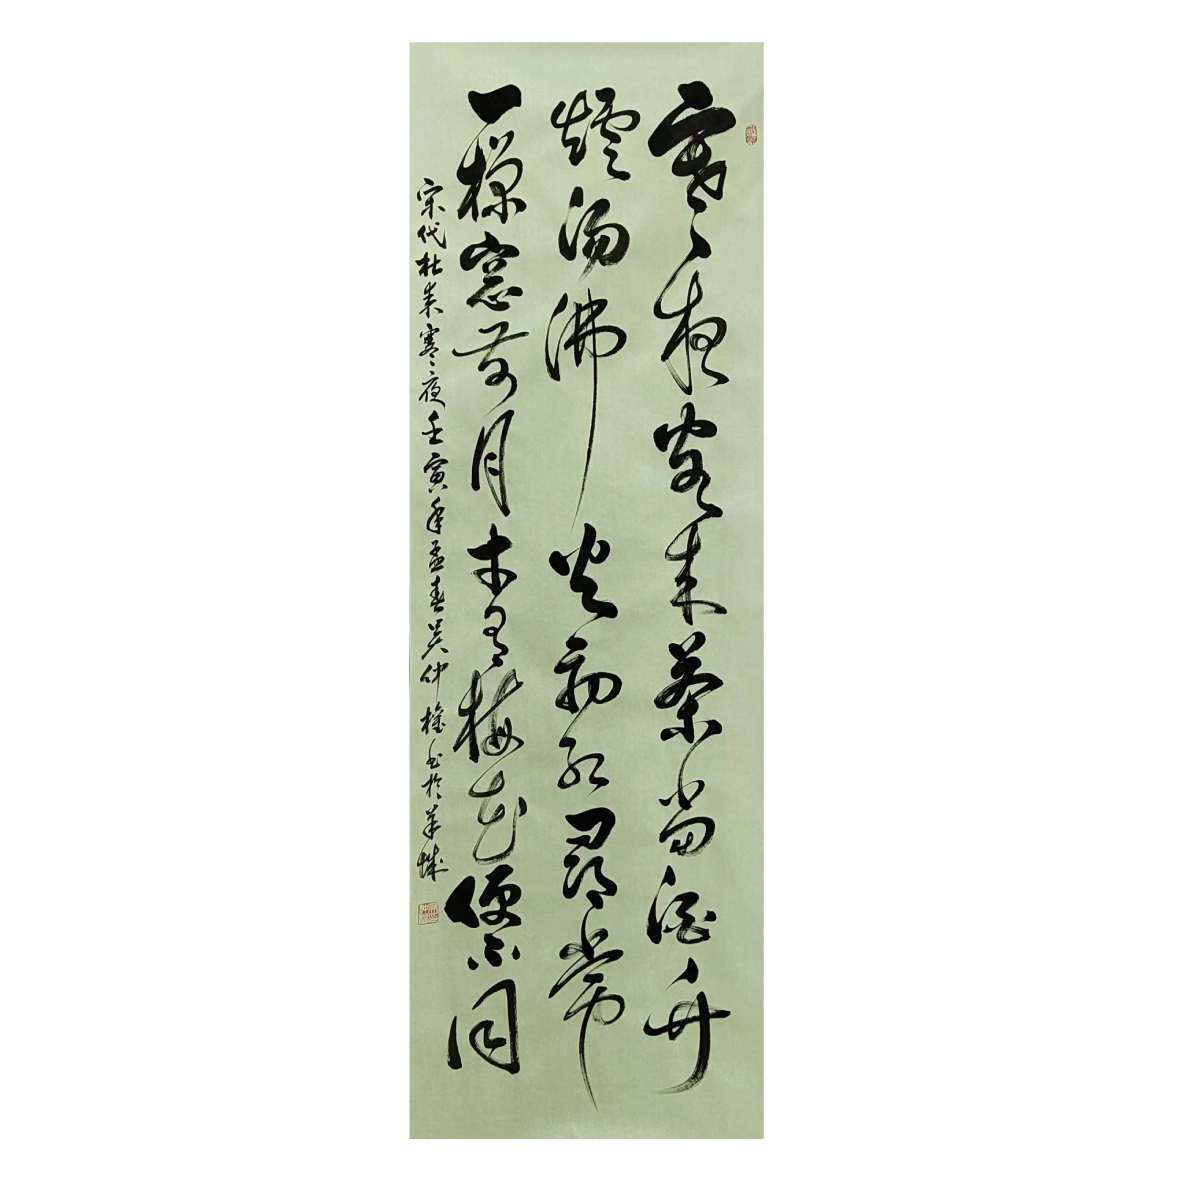 寒夜客来茶當酒竹
爐湯沸火初紅尋常
一樣窓前月才有梅花便不同
宋代杜耒寒夜壬寅年孟春吴仲书於羊城